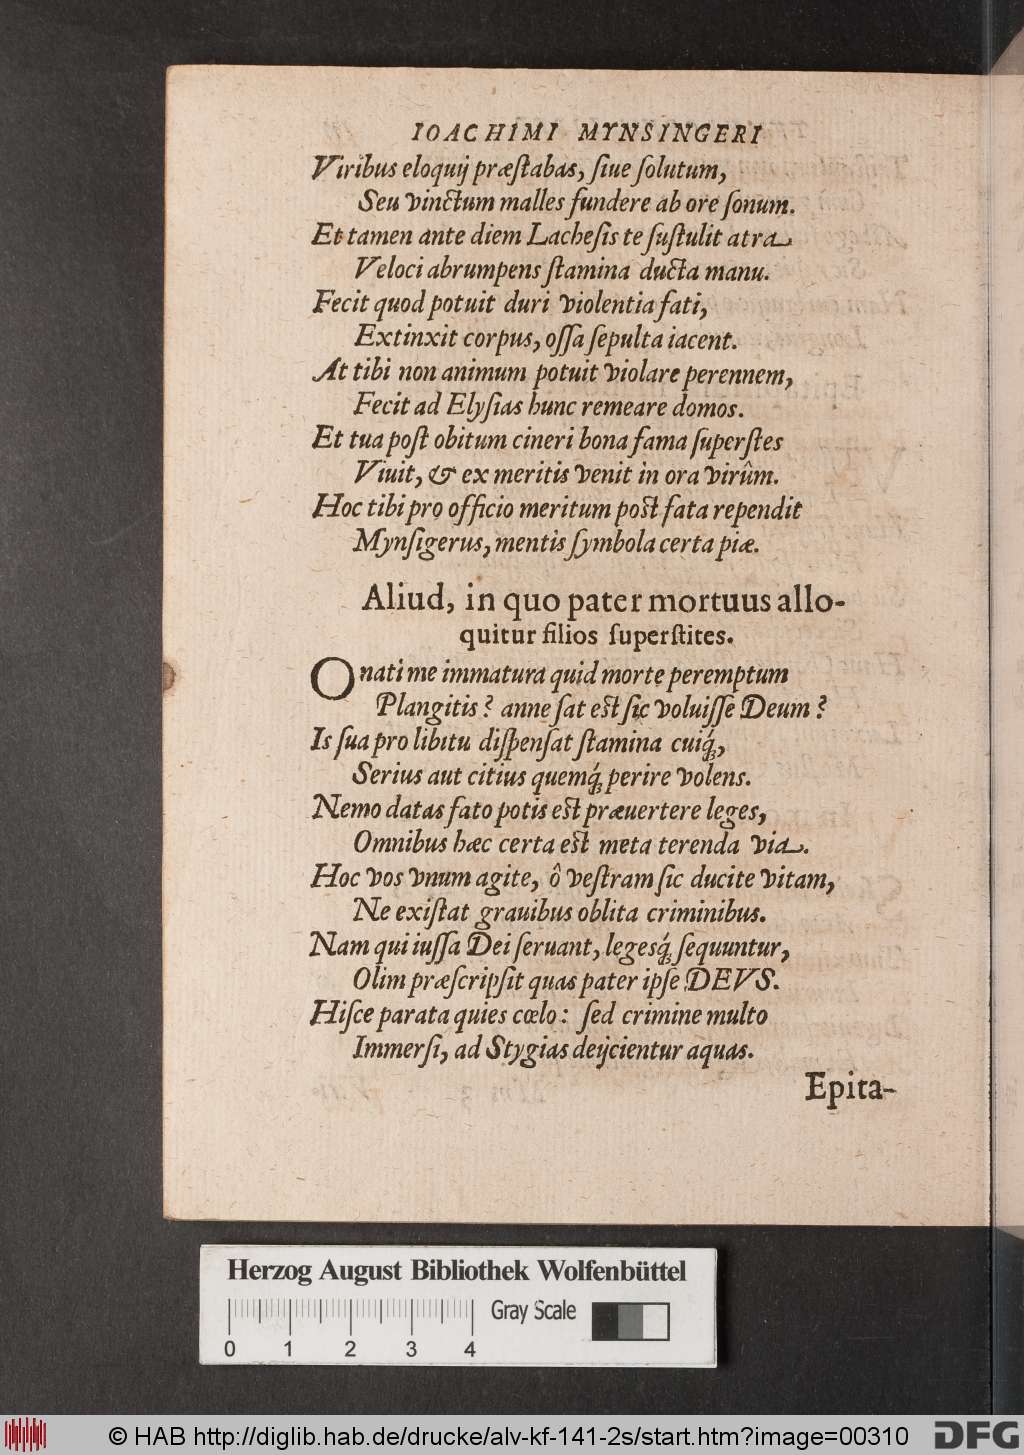 IOACHIMI MYNSINGERI
Viribus eloquij præſtabas, ſiue ſolutum,
Seu vinctum malles fundere ab ore ſonum.
Et tamen ante diem Lacheſis te ſuſtulit atra
Veloci abrumpens ſtamina ducta manu.
Fecit quod potuit duri violentia fati,
Extinxit corpus, oſſa ſepulta iacent.
At tibi non animum potuit violare perennem,
Fecit ad Elyſias hunc remeare domos.
Et tua poſt obitum cineri bona fama ſuperſtes
Viuit, & ex meritis venit in ora virûm.
Hoc tibi pro officio meritum poſt fata rependit
Mynſigerus, mentis ſymbola certa piæ.
Aliud, in quo pater mortuus allo-
quitur filios ſuperſtites.
O nati me immatura quid morte peremptum
Plangitis? anne ſat eſt ſic voluiſſe Deum?
Is ſua pro libitu diſpenſat ſtamina cuiq́;,
Serius aut citius quemq́; perire volens.
Nemo datas fato potis eſt præuertere leges,
Omnibus hæc certa eſt meta terenda via.
Hoc vos vnum agite, ô veſtram ſic ducite vitam,
Ne exiſtat grauibus oblita criminibus.
Nam qui iuſſa Dei ſeruant, legesq́; ſequuntur,
Olim præſcripſit quas pater ipſe DEVS.
Hiſce parata quies cœlo: ſed crimine multo
Immerſi, ad Stygias deijcientur aquas.
Epita-
Herzog August Bibliothek Wolfenbüttel
Gray Scale
0 1 2 3 4
© HAB http://diglib.hab.de/drucke/alv-kf-141-2s/start.htm?image=00310
DFG